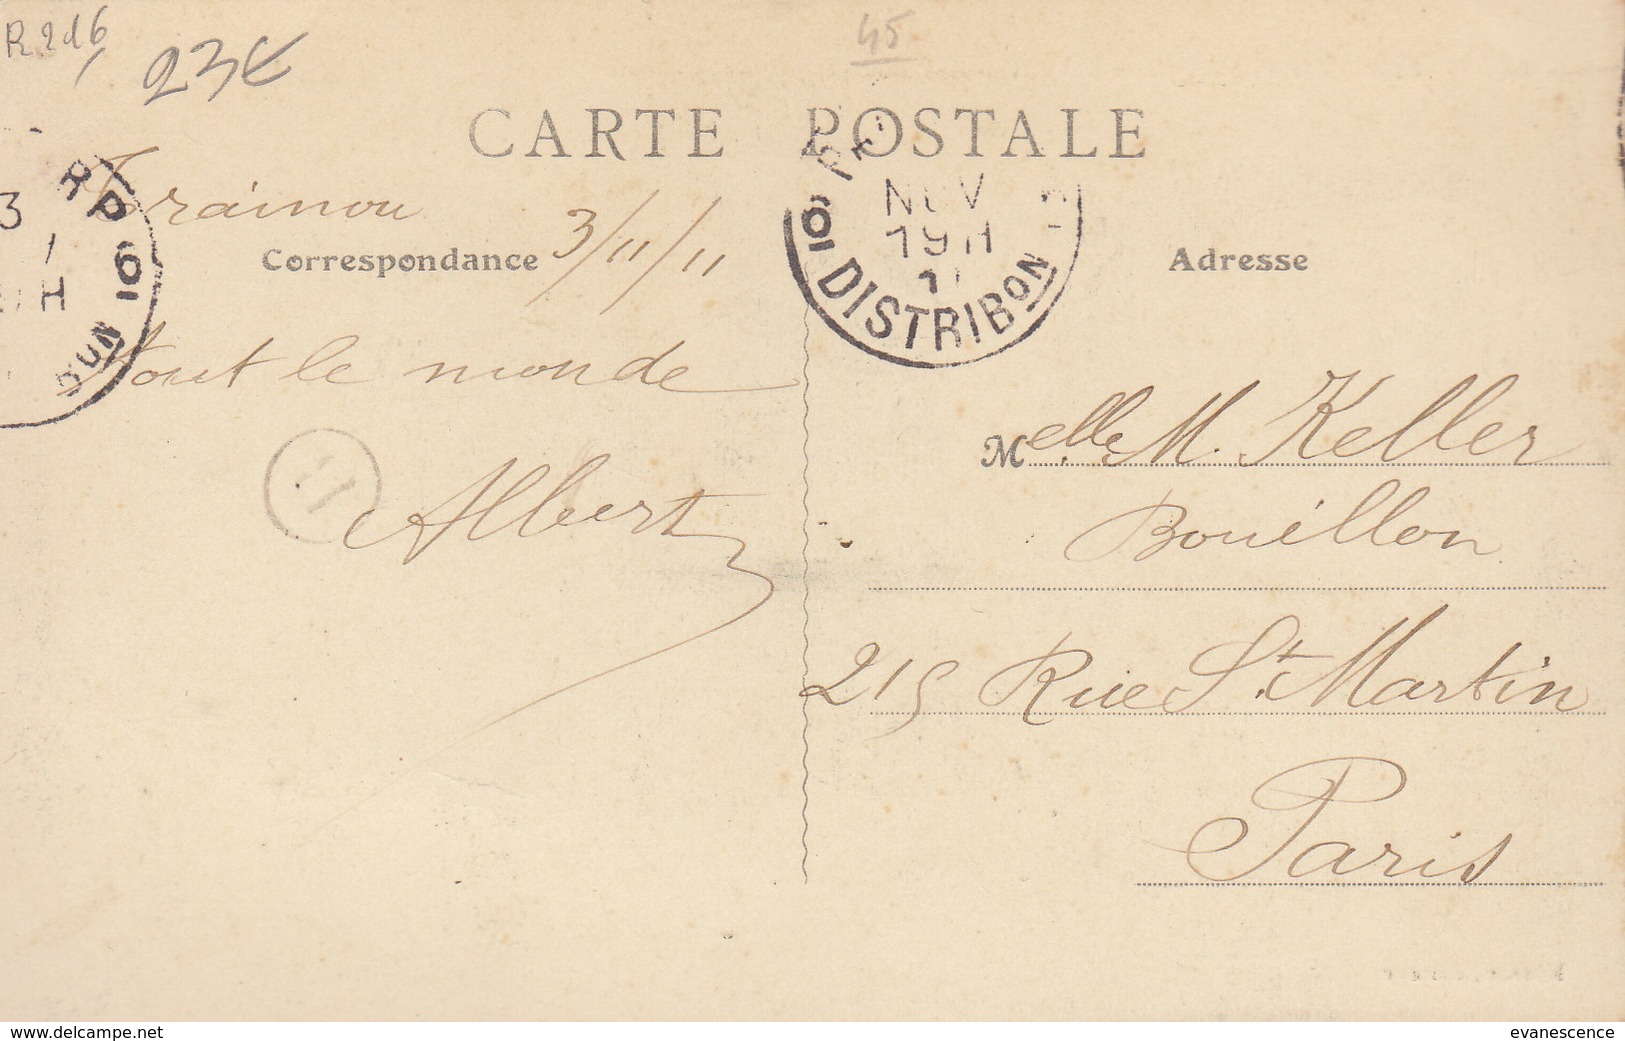 R216
23€
45
CARTE POSTALE
Trainou
3/11/11
Correspondance
Adresse
NOV
19 H
DISTRIBON
RP
tout le monde
Albert
Melle M. Keller
Bouillon
215 Rue St Martin
Paris
www.delcampe.net
evanescence